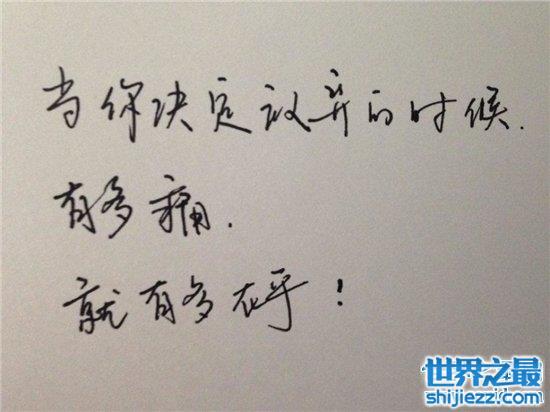 当你决定放弃的时候.
有多痛.
就有多在乎!
世界之最
shijiezzl.com